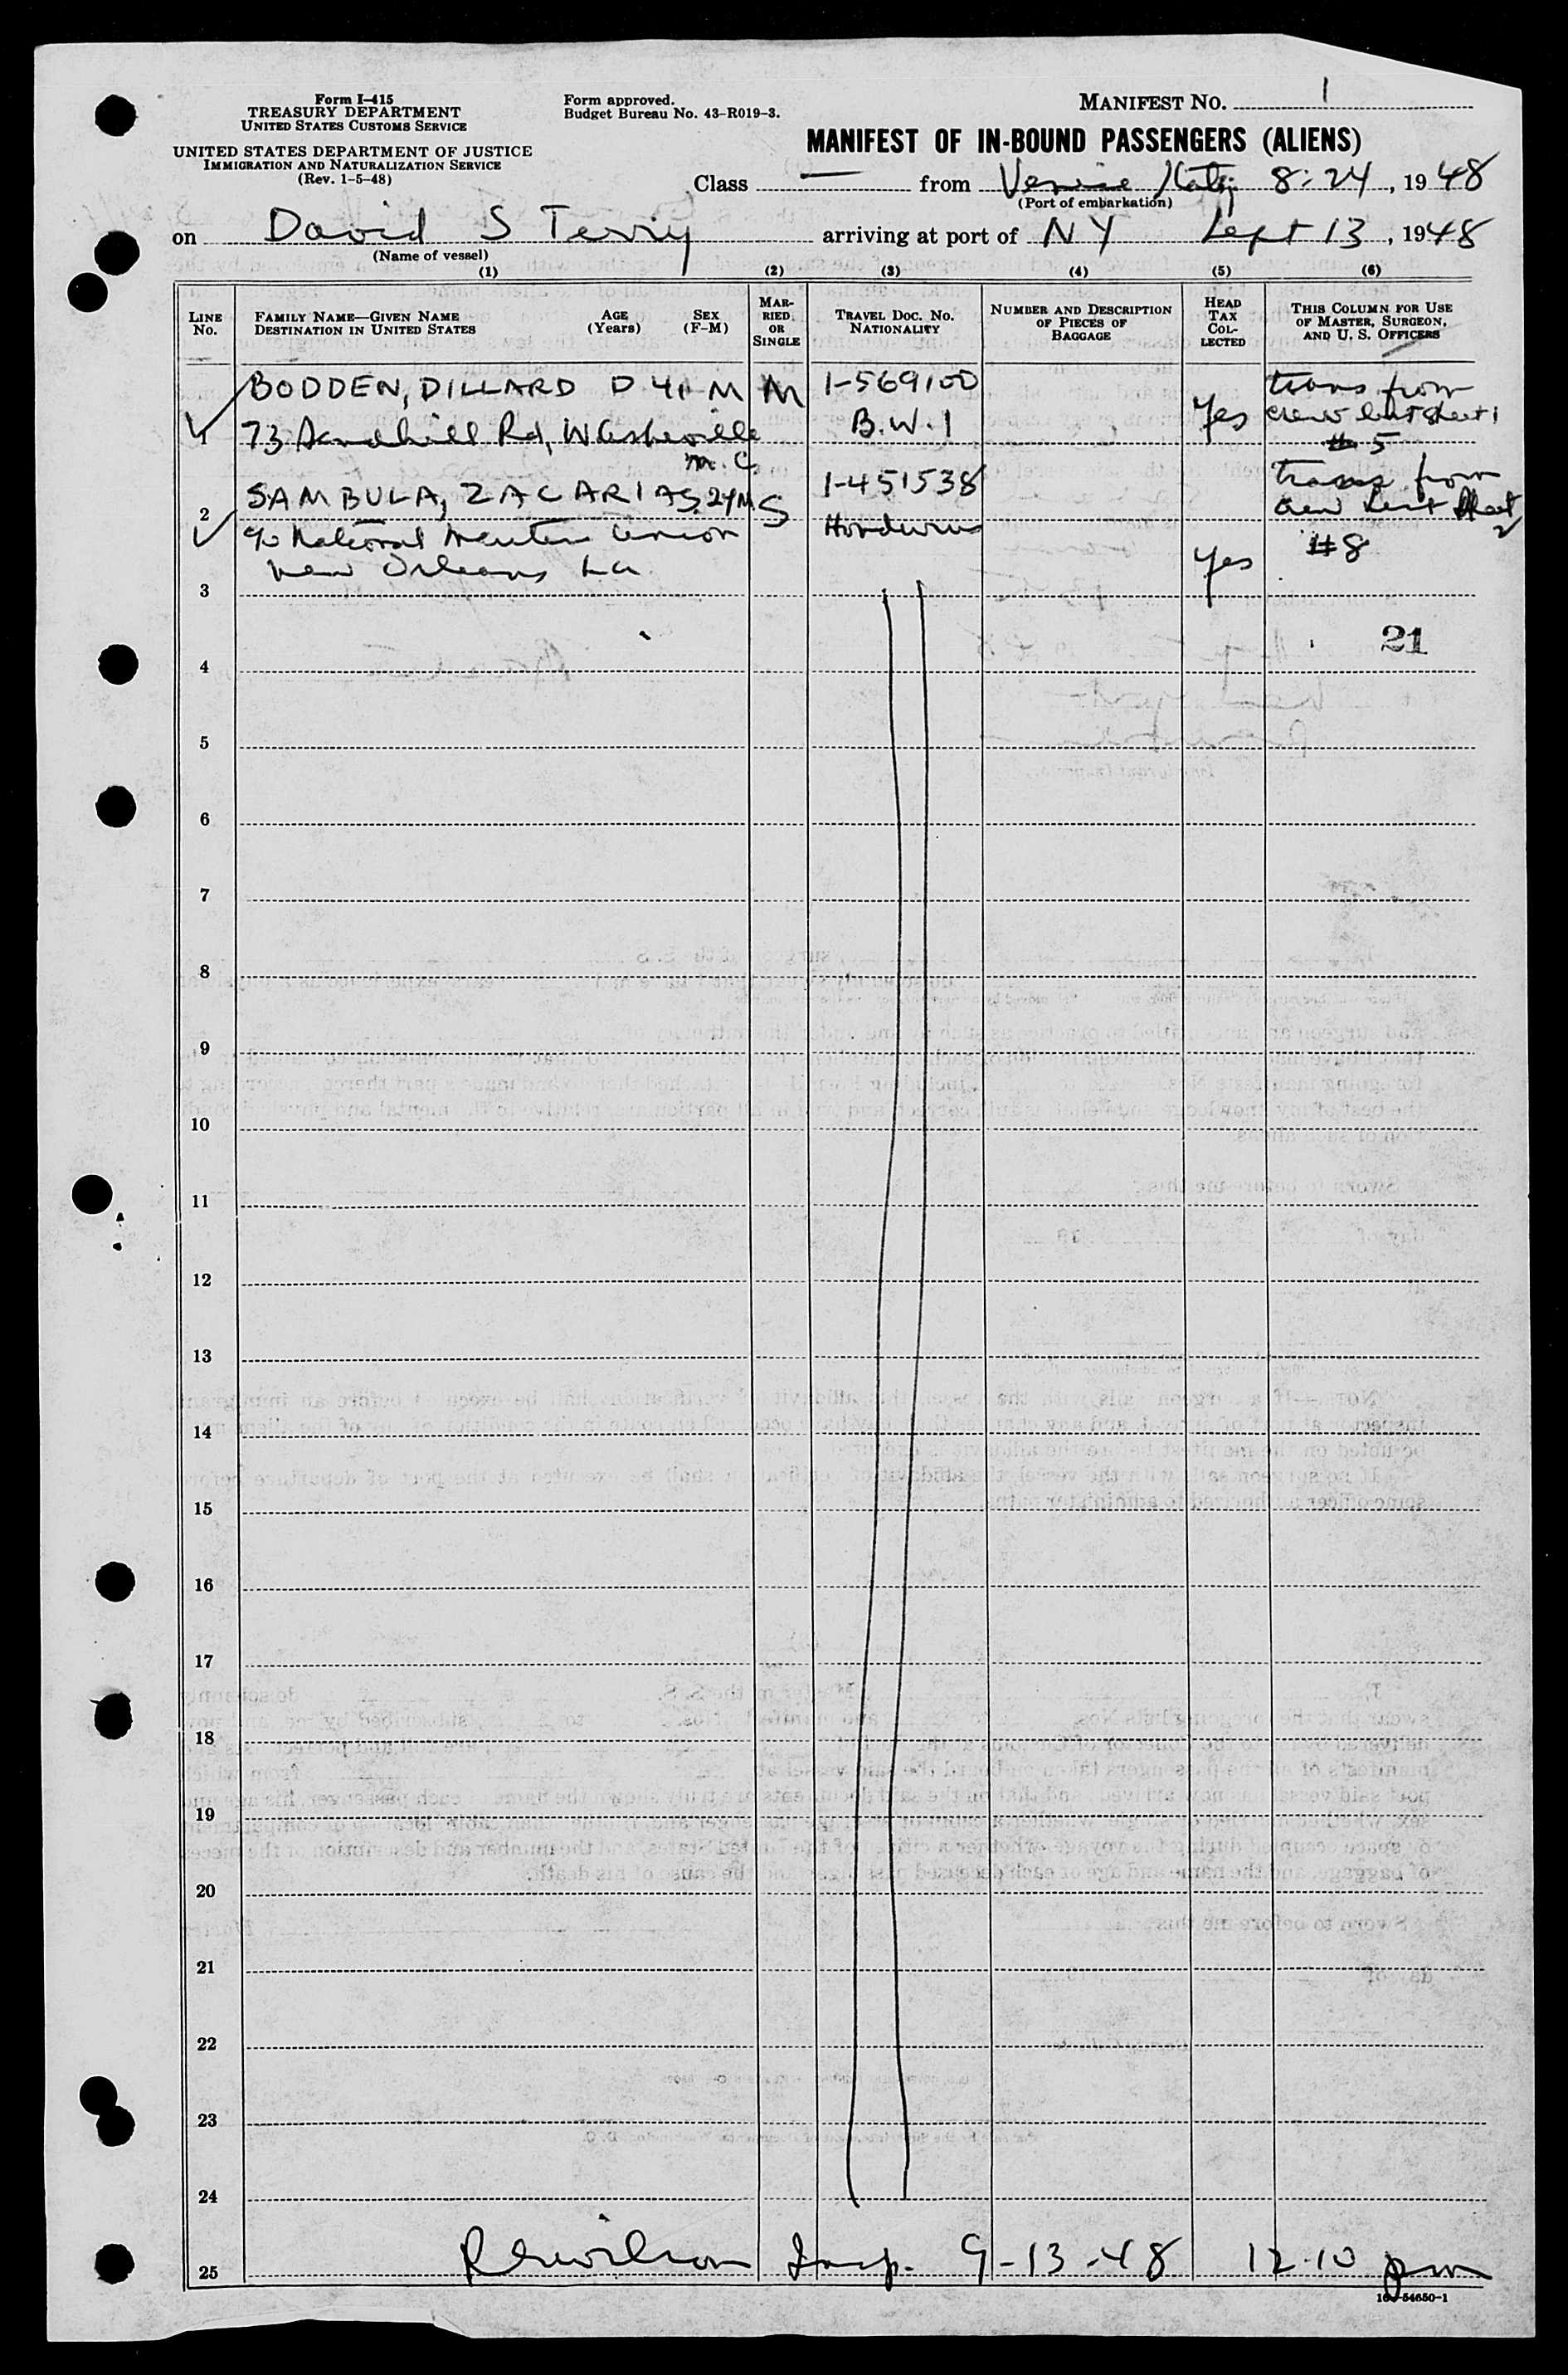 Form I-415
TREASURY DEPARTMENT
UNITED STATES CUSTOMS SERVICE
UNITED STATES DEPARTMENT OF JUSTICE
IMMIGRATION AND NATURALIZATION SERVICE
(Rev. 1-5-48)
Form approved.
Budget Bureau No. 43-R019-3.
MANIFEST NO. 1
MANIFEST OF IN-BOUND PASSENGERS (ALIENS)
Class — from Venice Italy 8-24, 1948
(Port of embarkation)
on David S Terry arriving at port of NY Sept 13, 1948
(Name of vessel)
(1) (2) (3) (4) (5) (6)
LINE No.
FAMILY NAME—GIVEN NAME
DESTINATION IN UNITED STATES
AGE (Years)
SEX (F-M)
MAR-RIED OR SINGLE
TRAVEL DOC. NO.
NATIONALITY
NUMBER AND DESCRIPTION OF PIECES OF BAGGAGE
HEAD TAX COL-LECTED
THIS COLUMN FOR USE OF MASTER, SURGEON, AND U. S. OFFICERS
1 BODDEN, DILLARD D 41 M M 1-569100 trans from
73 Rd, W Asheville B.W.I Yes crew list sheet 1
N.C. #5
2 SAMBULA, ZACARIAS 24 M S 1-451538 trans from
c/o National Maritime Union Honduras crew list sheet 2
New Orleans La. Yes #8
3
21
4
5
6
7
8
9
10
11
12
13
14
15
16
17
18
19
20
21
22
23
24
25 Wilson Insp. 9-13-48 12.10 pm
16-54650-1